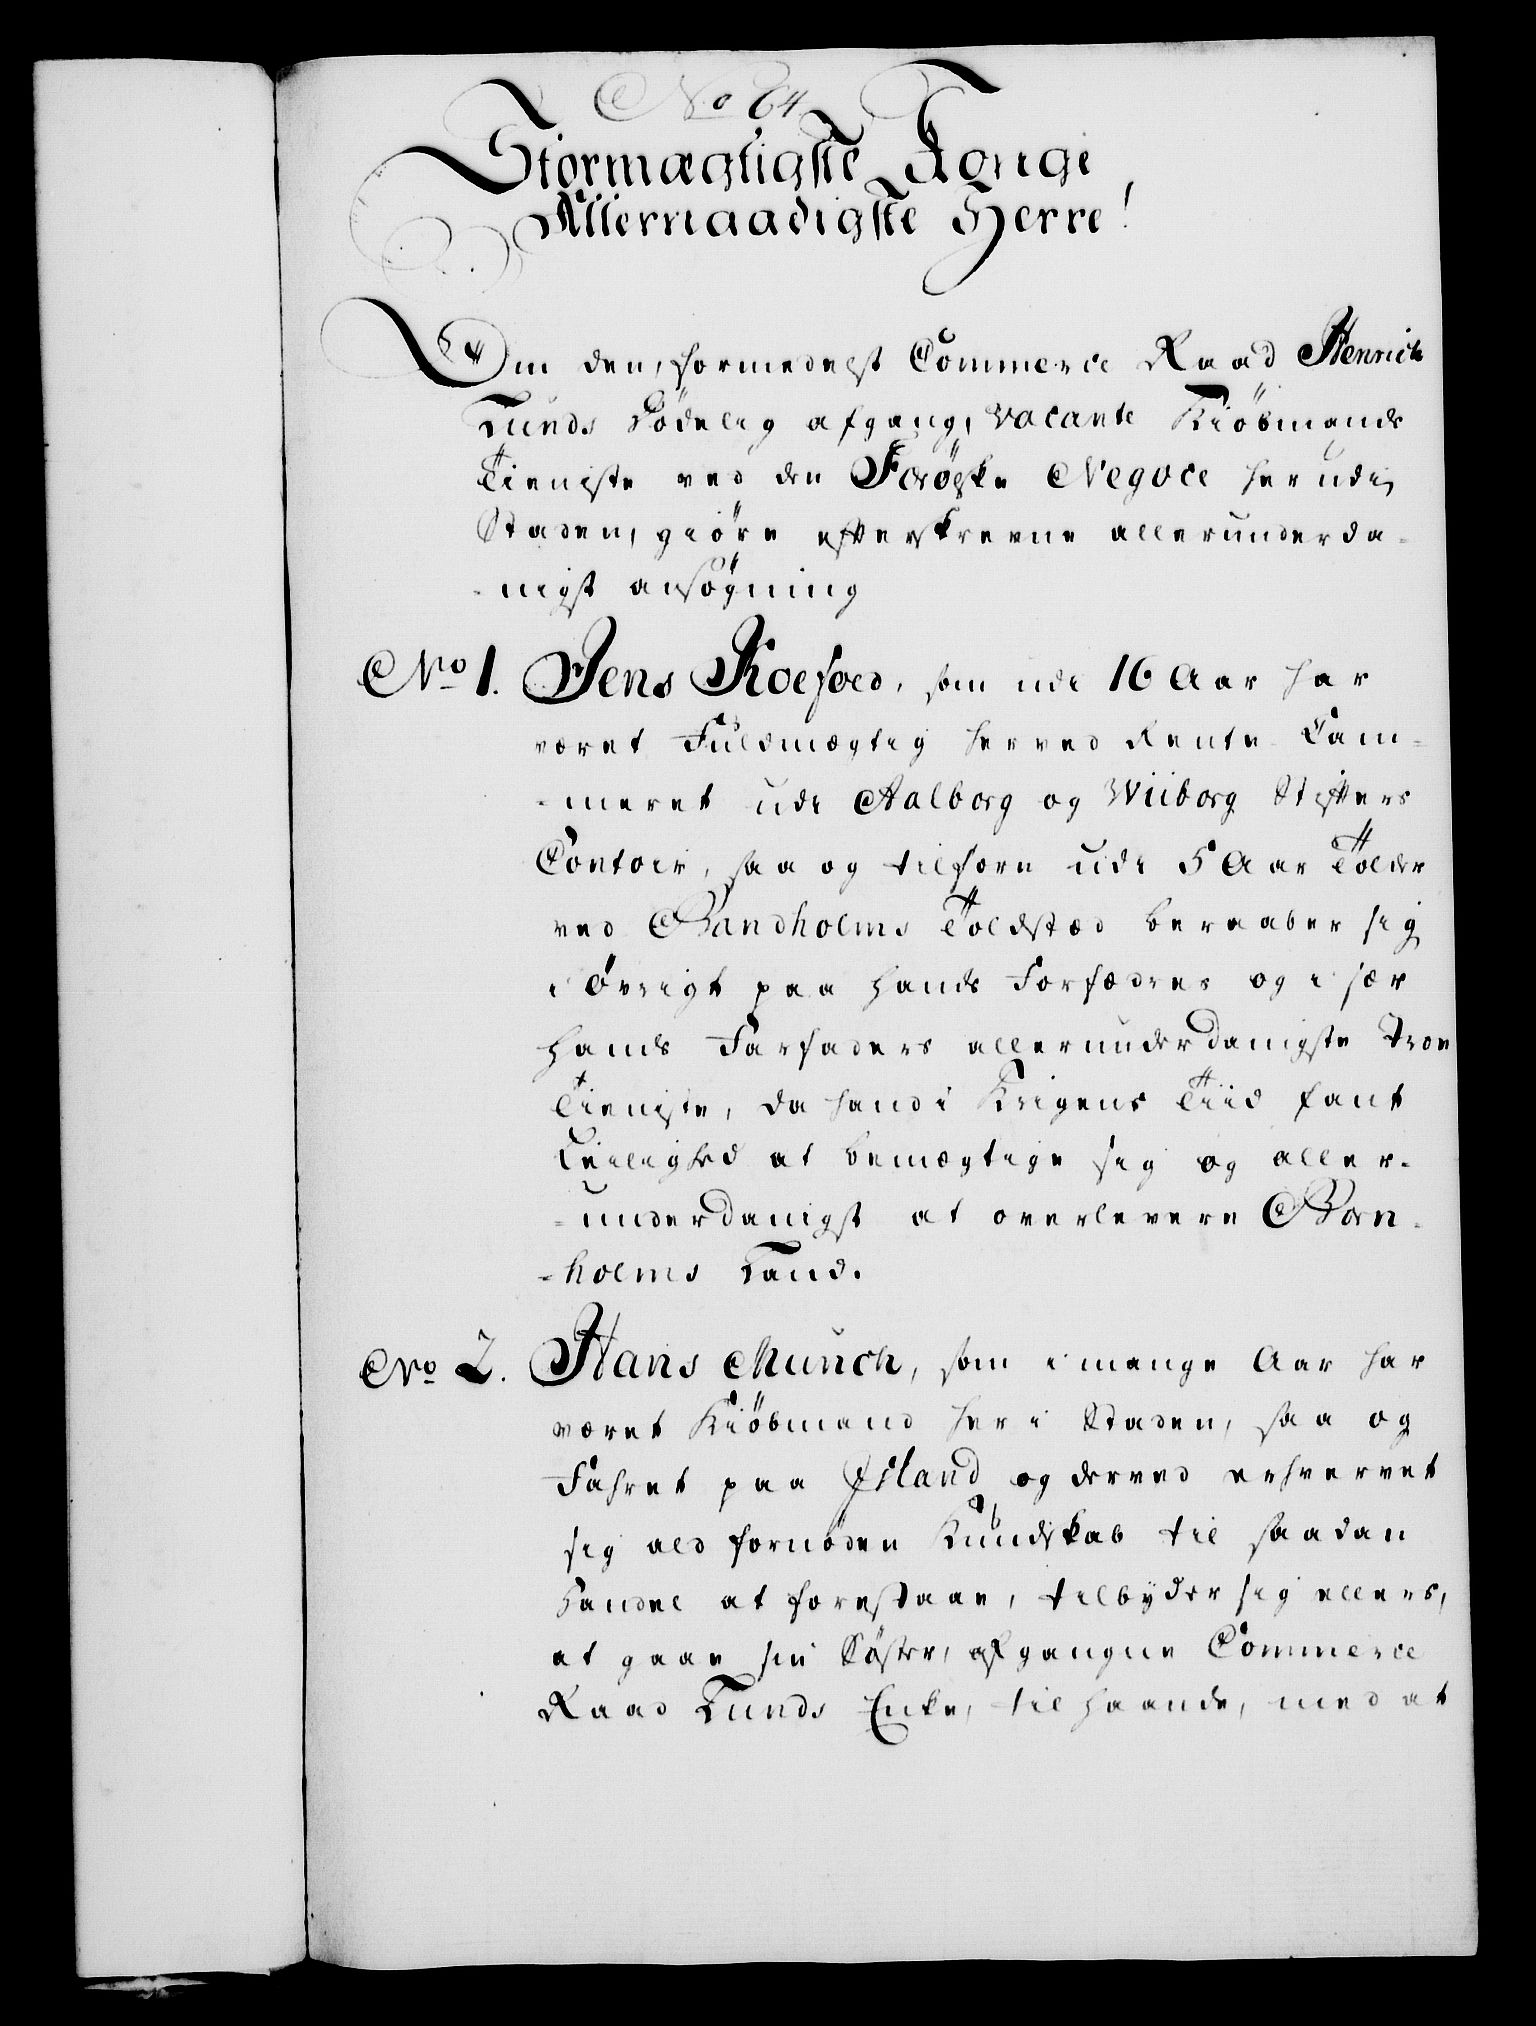 No 64
Stormægtigste Konge
Allernaadigste Herre!
Om den, formedelst Commerce Raad Henrich
Lunds Dödelig afgang, vacante Kiöbmands
Tieniste ved den Foeröiske Negoce her udi
Staden, giöre efterskrevne allerunderda-
-nigst ansögning
No 1. Jens Koefoed, som udi 16 Aar har
været Fuldmægtig her ved Rente Cam-
-meret udi Aalborg og Wiiborg Stifters
Contoir, saa og tilforn udi 5 Aar Tolder
ved Bandholms Toldstæd beraaber sig
i Övrigt paa hands Forfædres og i sær
hands Farfaders allerunderdanigste Troe
Tieniste, da hand i Krigens Tiid fant
Leilighed at bemægtige sig og aller-
-underdanigst at overlevere Born-
-holms Land.
No 2. Hans Munch, som i mange Aar har
været Kiöbmand her i Staden, saa og
Fahret paa Island og derved erhvervet
sig ald fornöden Kundskab til saadan
Handel at forestaae, tilbyder sig ellers,
at gaae sin Söster, afgangne Commerce
Raad Lunds Enke, til haande, med at